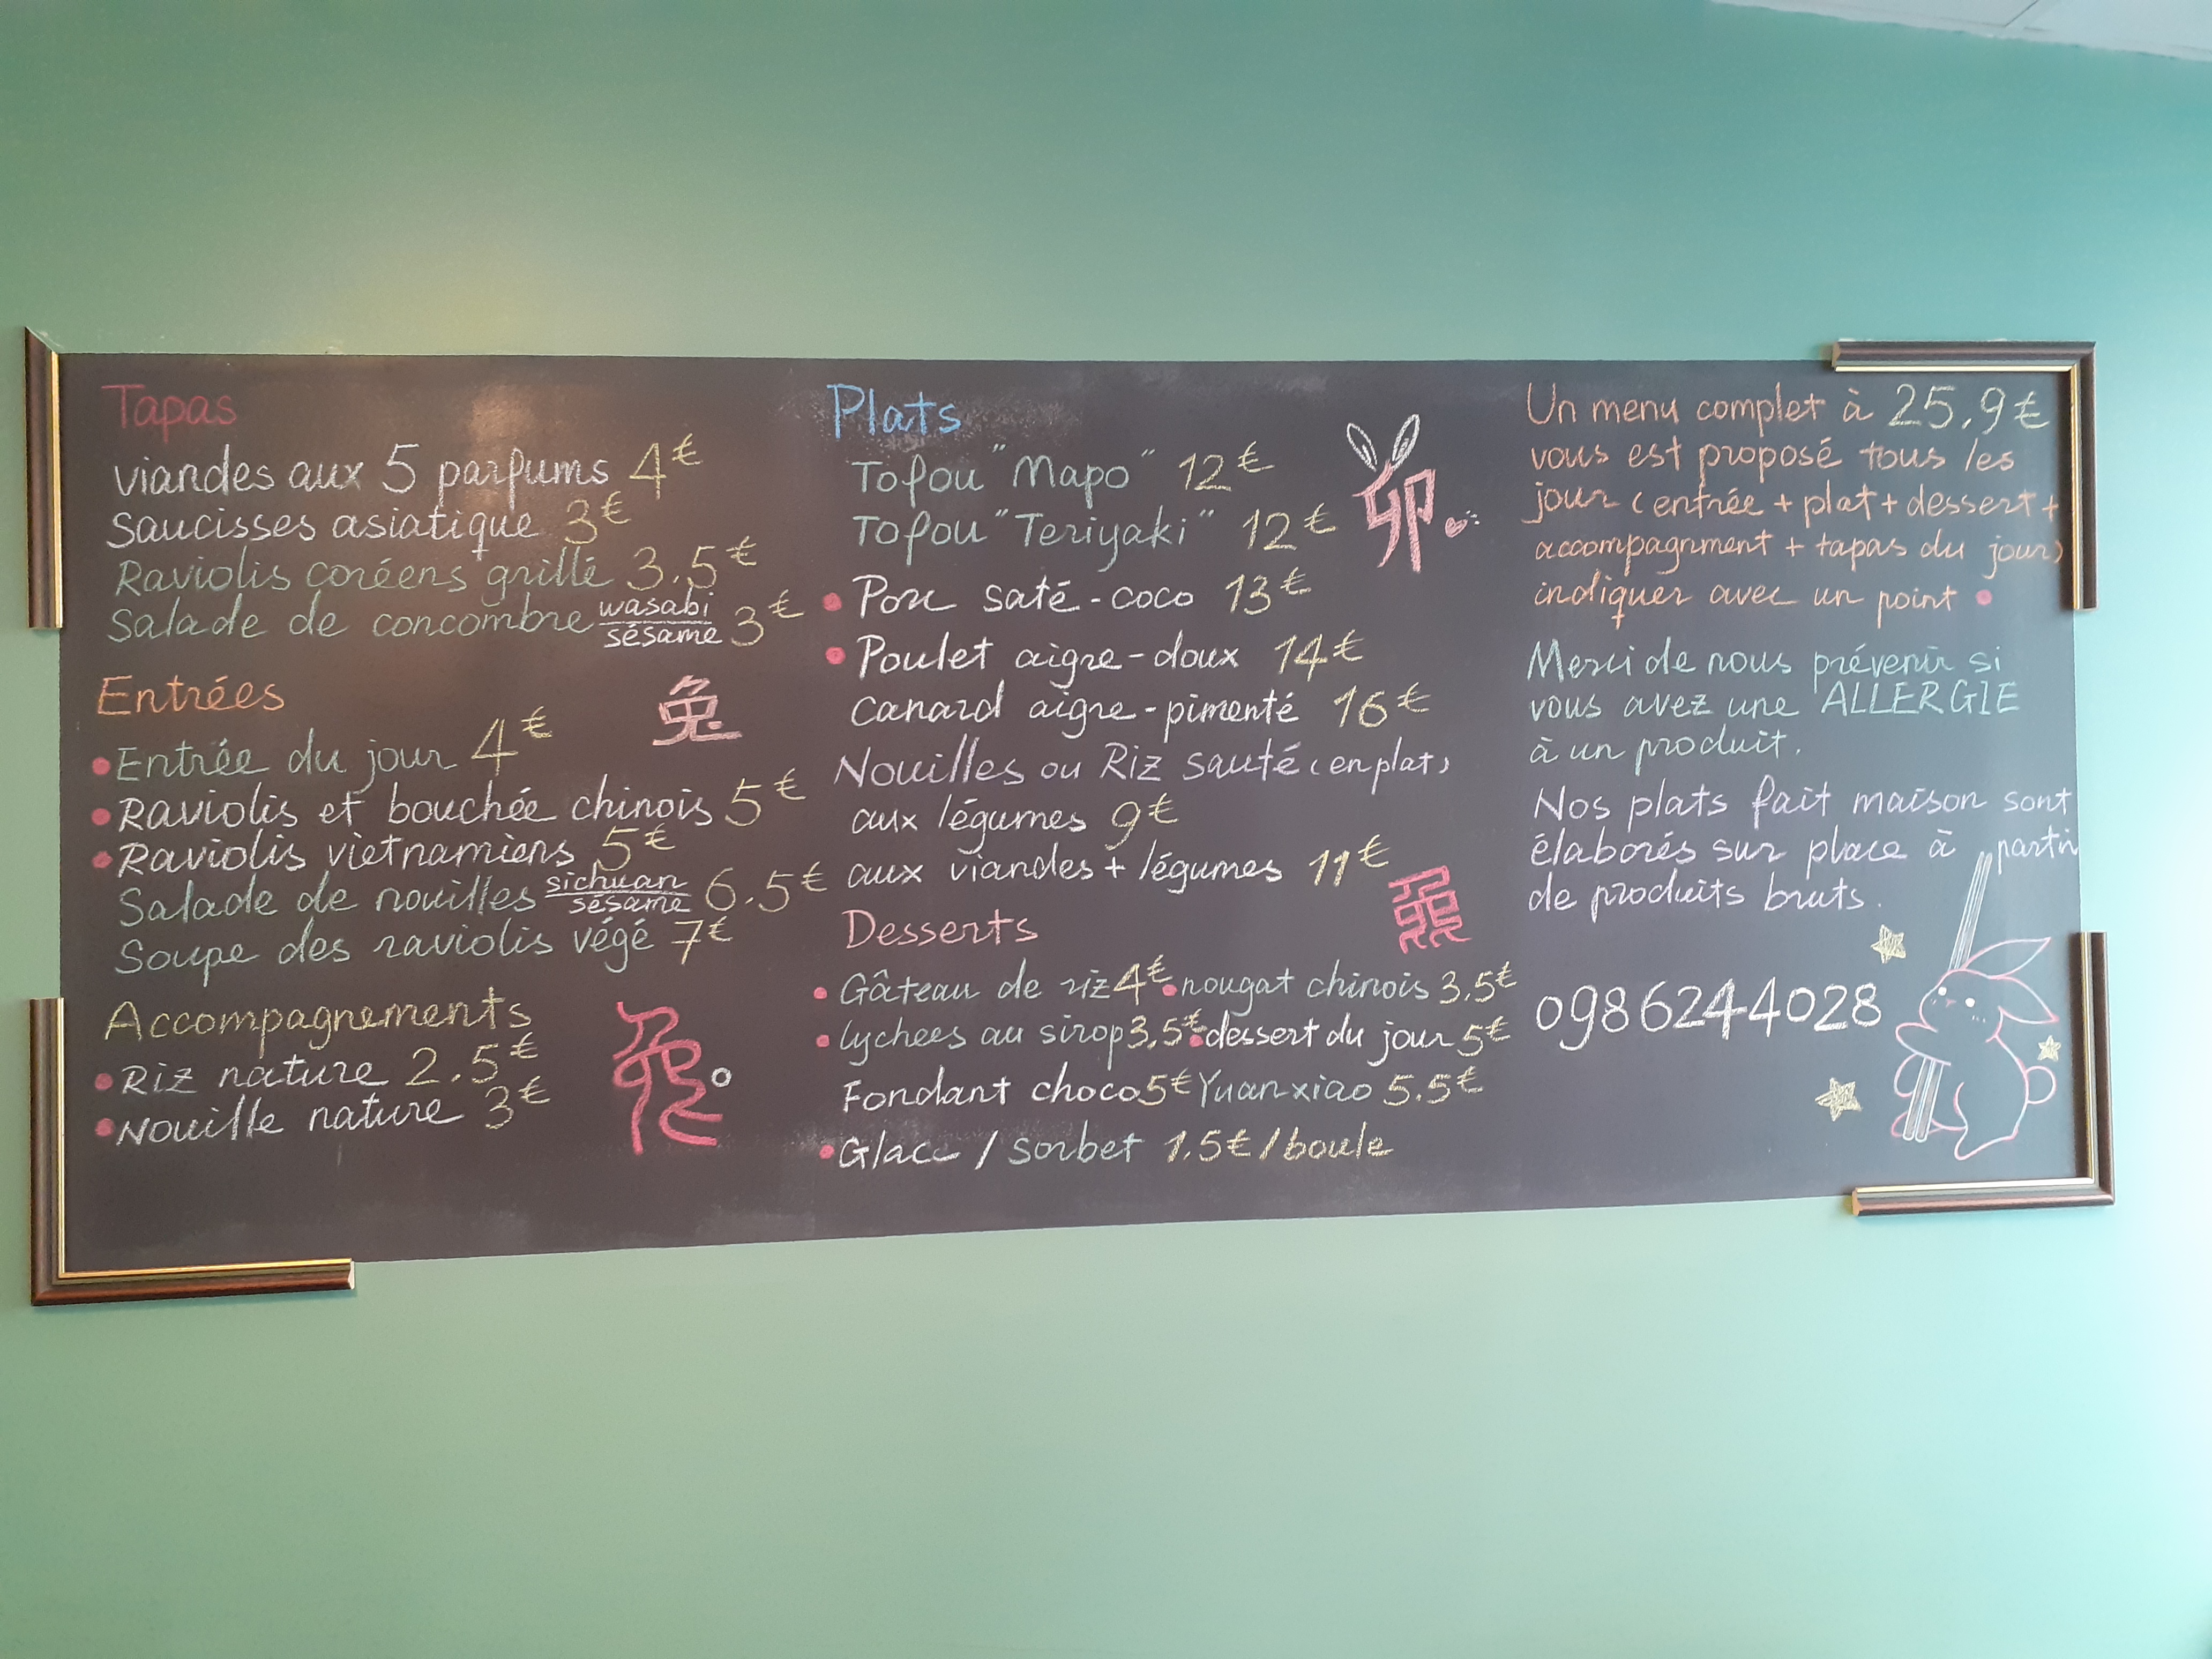 Tapas
viandes aux 5 parfums 4€
saucisses asiatique 3€
Raviolis coréens grillé 3.5€
Salade de concombre wasabi sésame 3€
Entrées
兔
Entrée du jour 4€
Raviolis et bouchée chinois 5€
Raviolis vietnamiens 5€
Salade de nouilles sichuan sésame 6.5€
Soupe des raviolis végé 7€
Accompagnements
Riz nature 2.5€
Nouille nature 3€
Plats
Tofou "Mapo" 12€
卯
Tofou "Teriyaki" 12€
Porc saté-coco 13€
Poulet aigre-doux 14€
canard aigre-pimenté 16€
Nouilles ou Riz sauté (en plat)
aux légumes 9€
aux viandes + légumes 11€
Desserts
Gâteau de riz 4€ nougat chinois 3.5€
lychees au sirop 3.5€ dessert du jour 5€
Fondant choco 5€ Yuanxiao 5.5€
Glace / sorbet 1.5€/boule
Un menu complet à 25.9€
vous est proposé tous les
jour (entrée + plat + dessert +
accompagnment + tapas du jour)
indiquer avec un point
Merci de nous prévenir si
vous avez une ALLERGIE
à un produit.
Nos plats fait maison sont
élaborés sur place à partir
de produits bruts.
0986244028